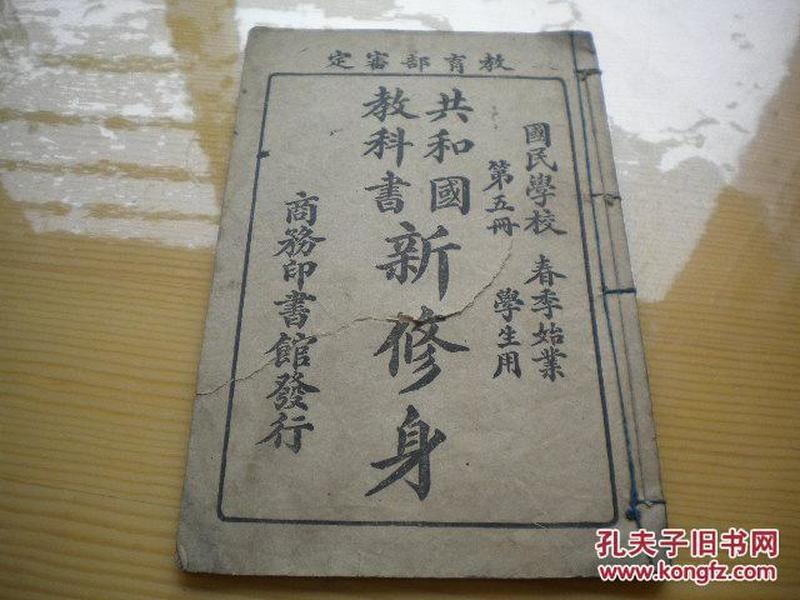 定審部育教
國民學校 春季始業
第五冊 學生用
共和國
教科書
新修身
商務印書館發行
孔夫子旧书网
www.kongfz.com